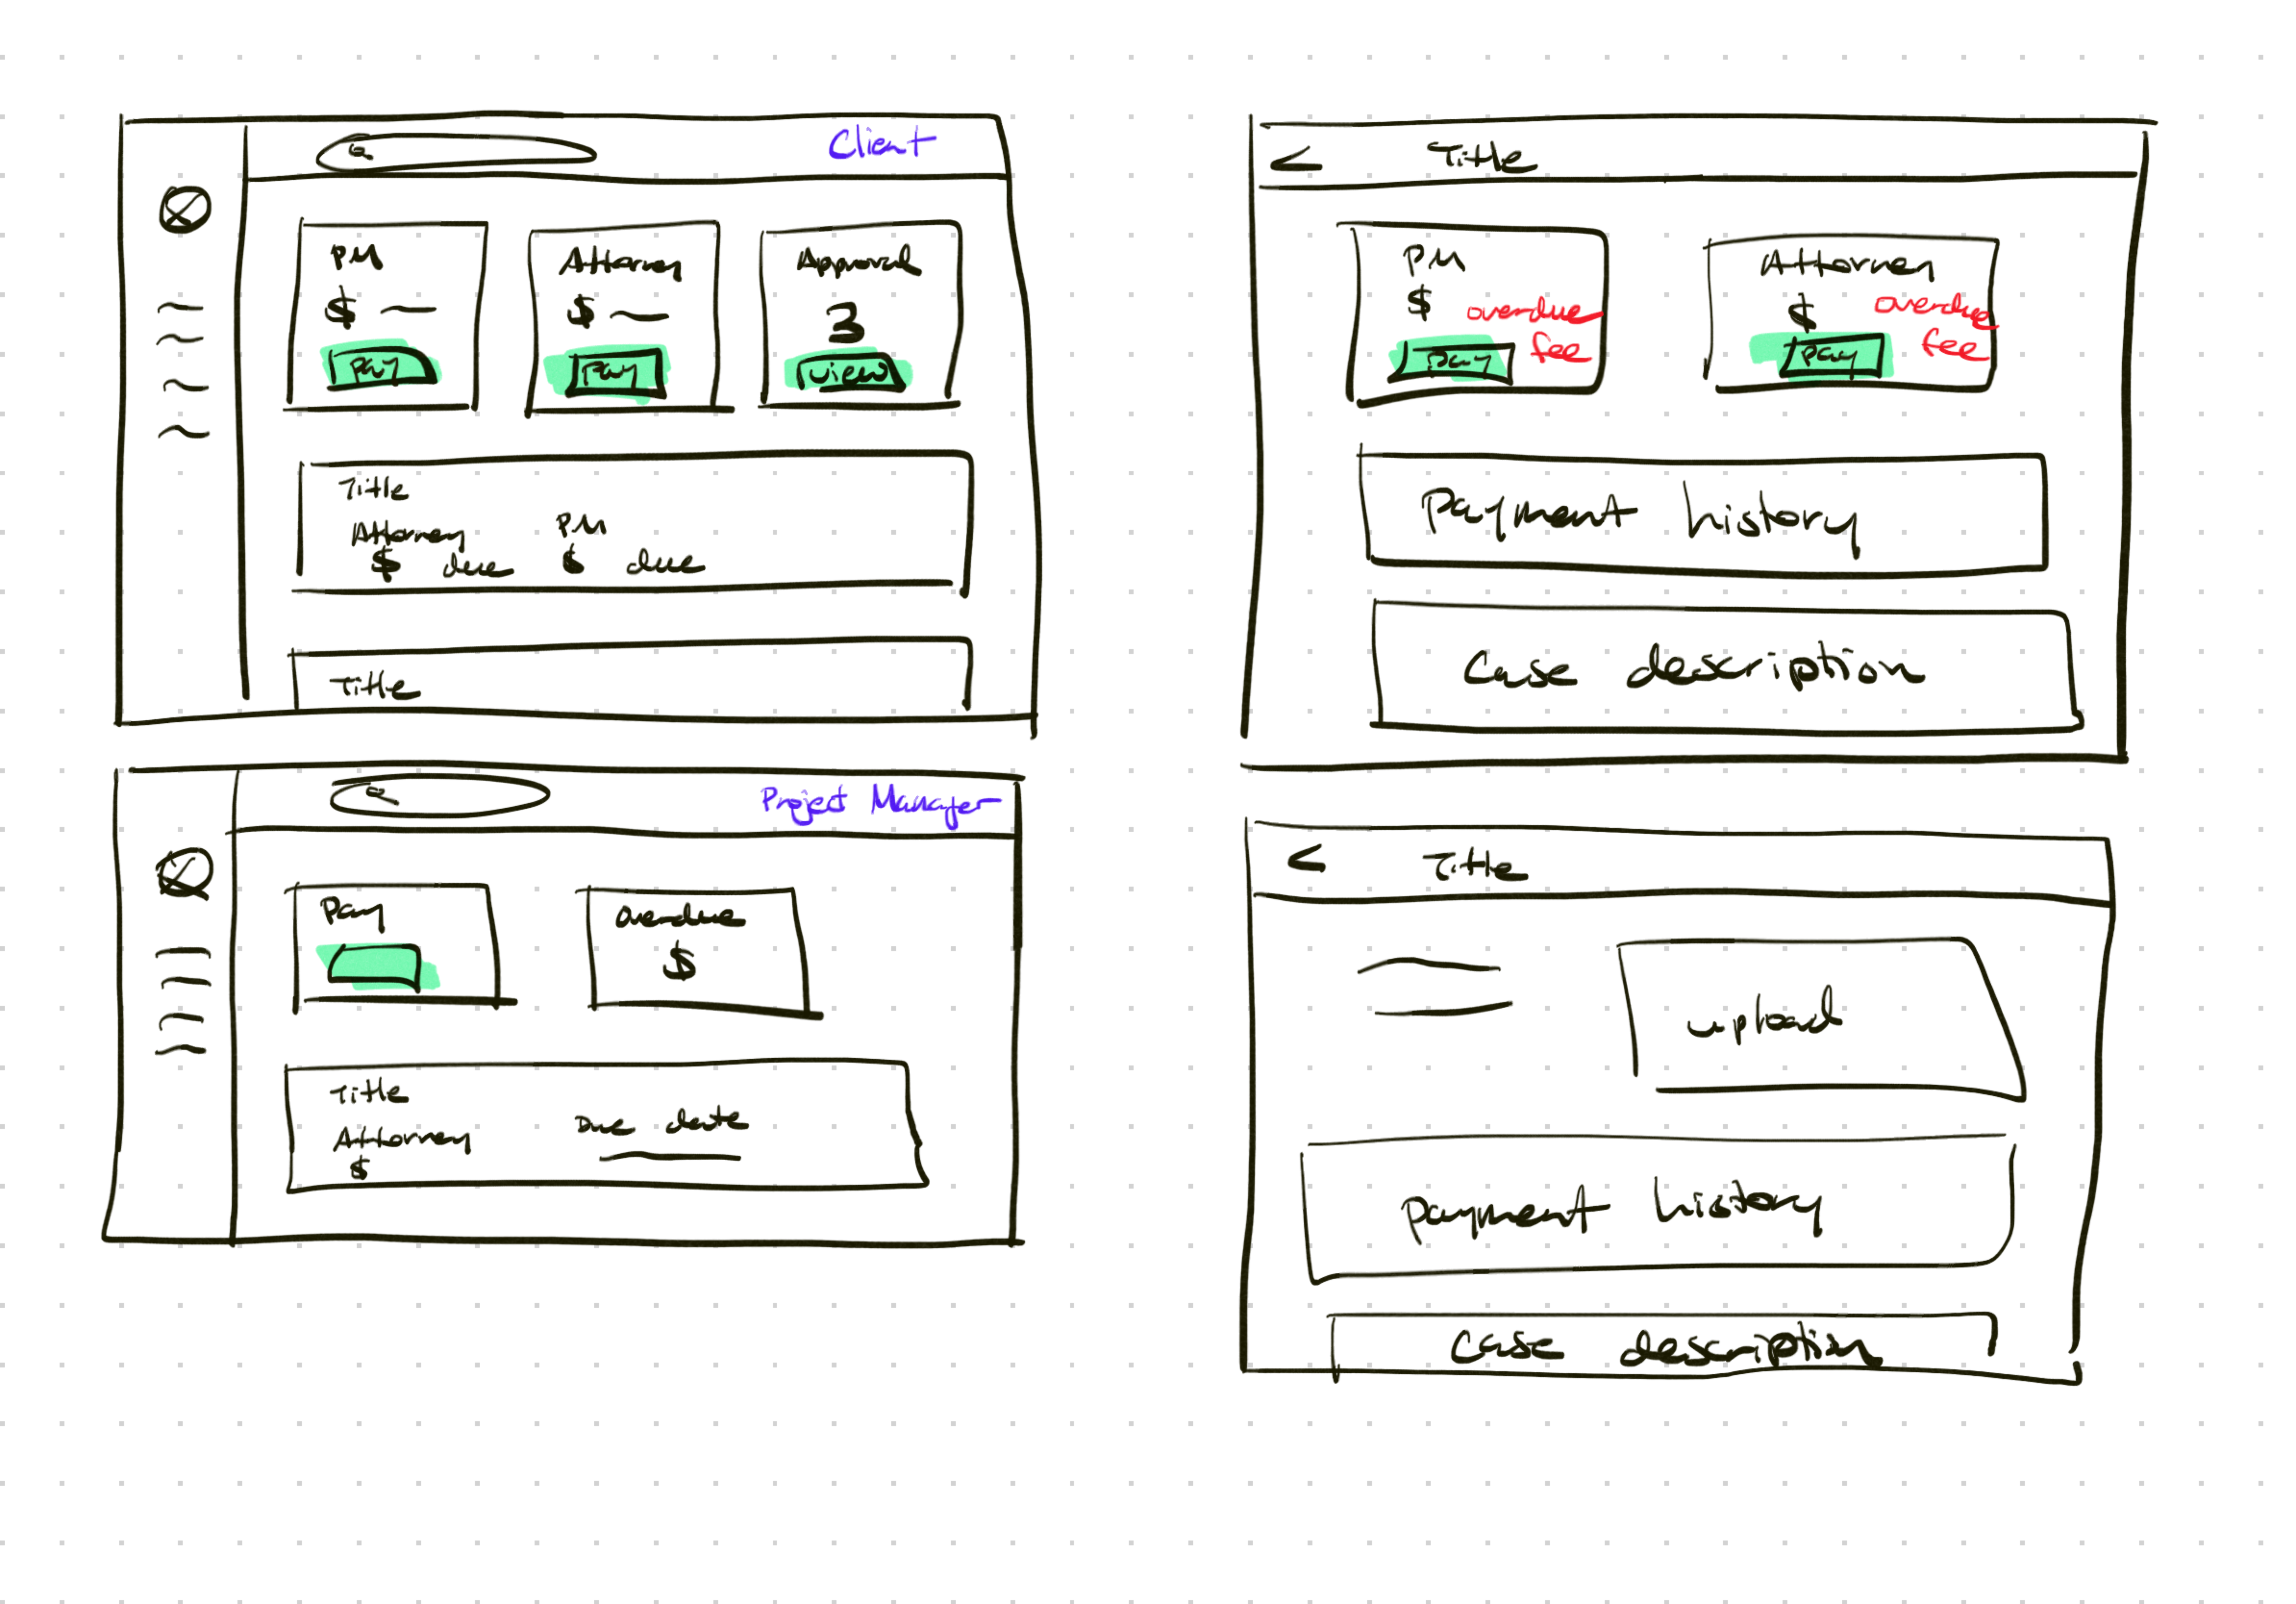 Client
PM
$
Pay
Attorney
$
Pay
Approval
3
View
Title
Attorney
$ due
PM
$ due
Title
Title
PM
$
overdue
fee
Pay
Attorney
$
overdue
fee
Pay
Payment history
Case description
Project Manager
Pay
Overdue
$
Title
Attorney
$
Due date
Title
upload
payment history
Case description